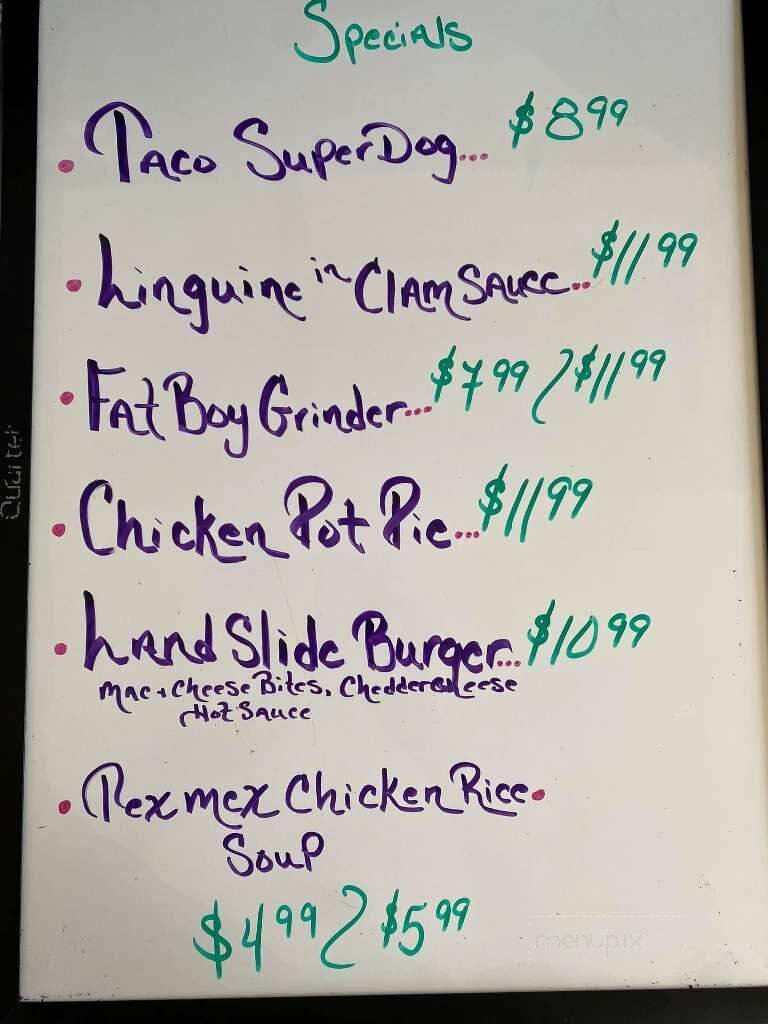 Specials
• Taco SuperDog... $8.99
• Linguine in Clam Sauce.. $11.99
• Fat Boy Grinder... $7.99 / $11.99
• Chicken Pot Pie... $11.99
• Land Slide Burger... $10.99
Mac + Cheese Bites, Chedder Cheese
Hot Sauce
• Tex mex Chicken Rice •
Soup
$4.99 / $5.99
menupix
Quartet